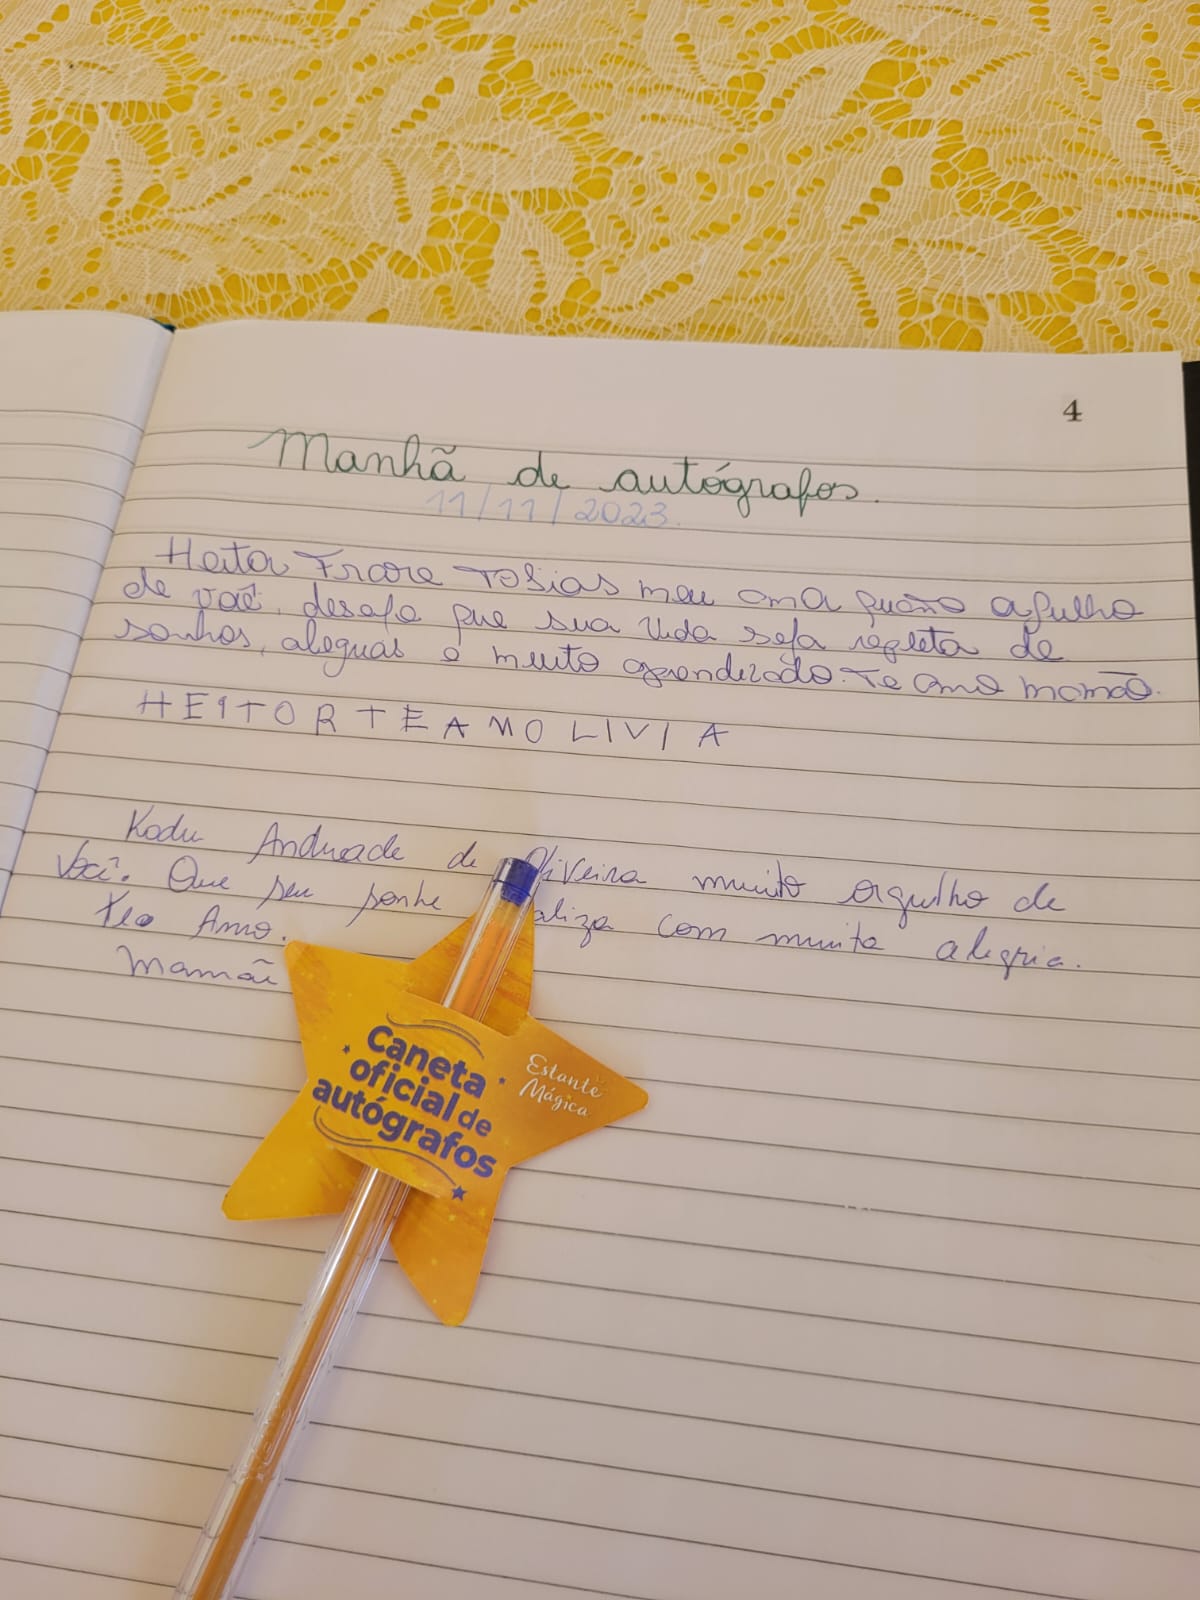 4
Manhã de autógrafos.
11/11/2023.
Heitor Frare Tobias meu
de você, desejo que sua vida seja repleta de
sonhos, alegrias e muito aprendizado. Te amo mamãe.
HEITOR TE AMO LIVIA
Kadu Andrade de Oliveira muito orgulho de
você. Que seu sonhe aliza com muita alegria.
Amo.
Mamãe
Caneta
oficial de
autógrafos
Estante
Mágica